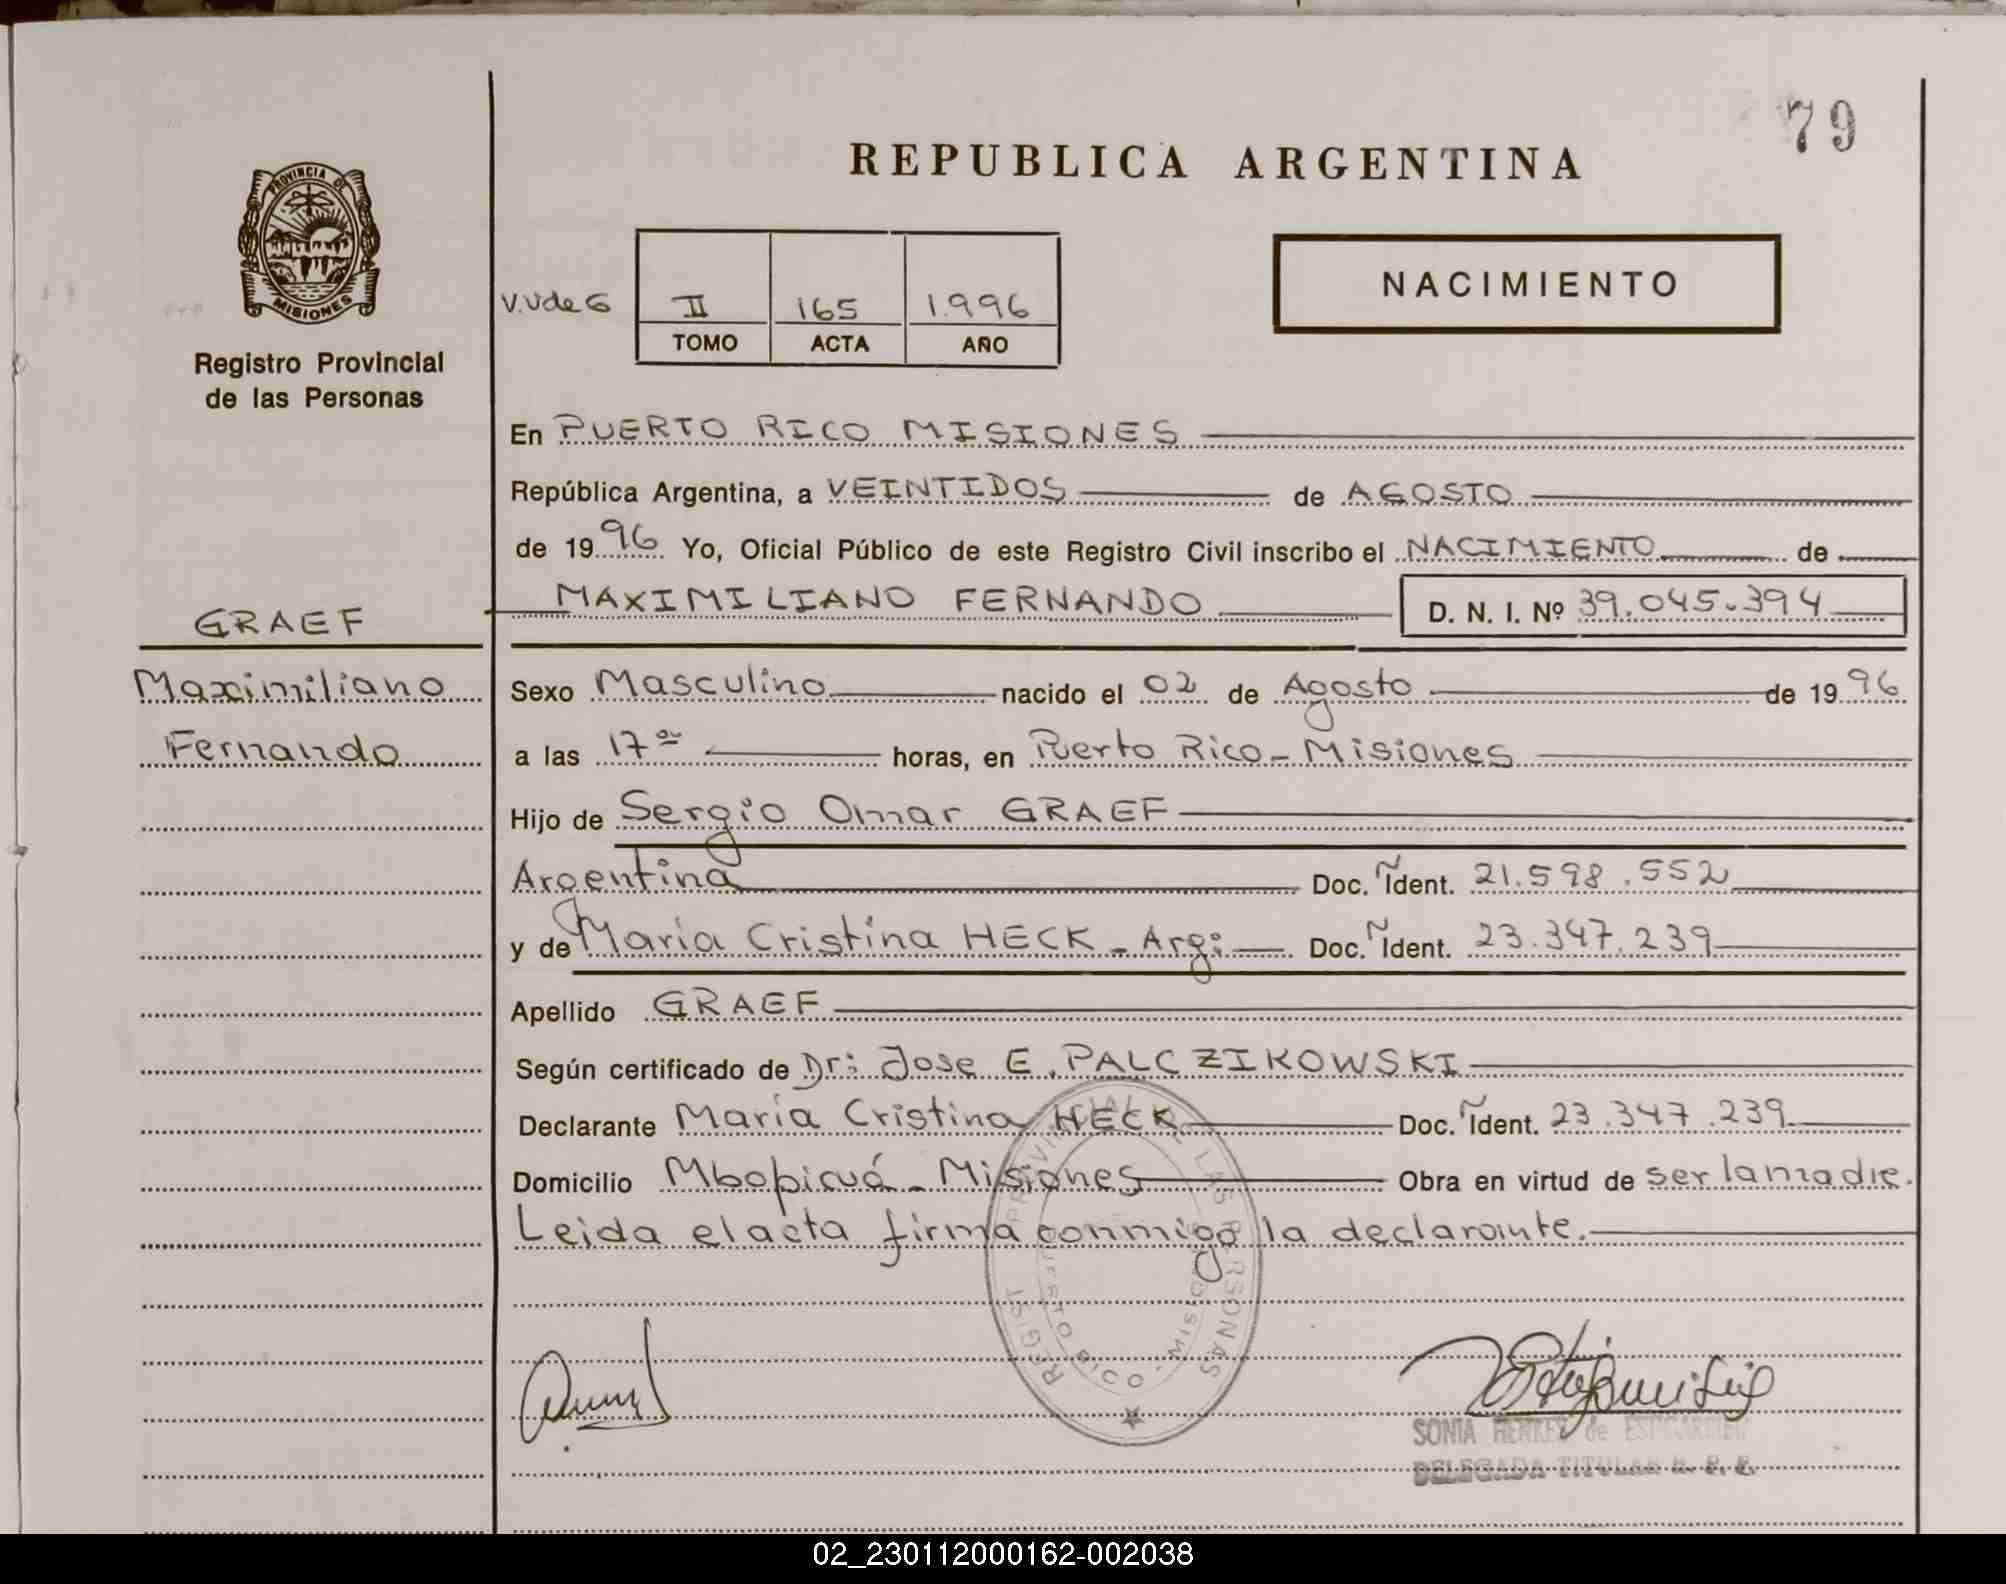 79
REPUBLICA ARGENTINA
PROVINCIA DE
MISIONES
Registro Provincial
de las Personas
NACIMIENTO
V.V de G
II 165 1.996
TOMO ACTA AÑO
En PUERTO RICO MISIONES
República Argentina, a VEINTIDOS de AGOSTO
de 1996 Yo, Oficial Público de este Registro Civil inscribo el NACIMIENTO de
MAXIMILIANO FERNANDO D. N. I. Nº 39.045.394
GRAEF
Maximiliano
Fernando
Sexo Masculino nacido el 02 de Agosto de 1996
a las 17 horas, en Puerto Rico - Misiones
Hijo de Sergio Omar GRAEF
Argentina Doc. Ident. 21.598.552
y de Maria Cristina HECK - Arg: Doc. Ident. 23.347.239
Apellido GRAEF
Según certificado de Dr: Jose E. PALCZIKOWSKI
Declarante Maria Cristina HECK Doc. Ident. 23.347.239
Domicilio Mbopicuá - Misiones Obra en virtud de ser la madre.
Leida el acta firma conmigo la declarante.
REGIST PROVINCIAL LAS PERSONAS
PUERTO RICO - MISIONES
SONIA de
DELEGADA TITULAR R. P. P.
02_230112000162-002038